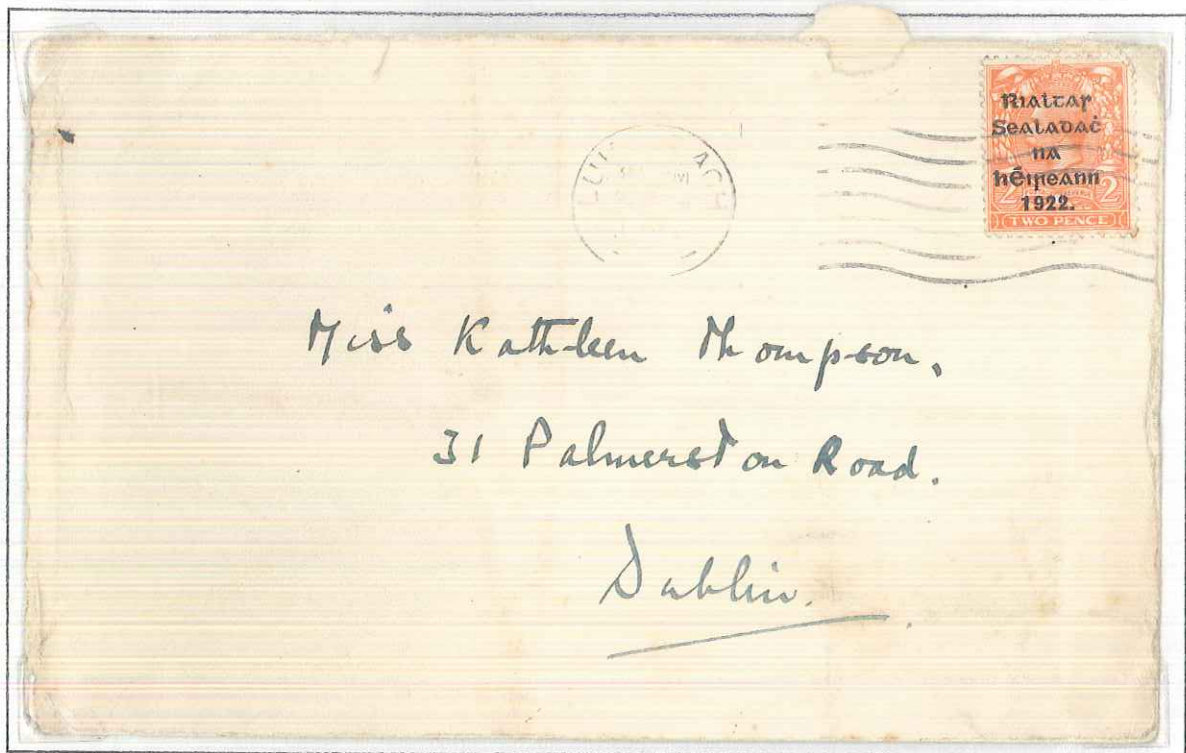 Rialtar
Sealadaċ
na
hÉireann
1922.
2 2
TWO PENCE
Miss Kathleen Thompson,
31 Palmerston Road.
Dublin.